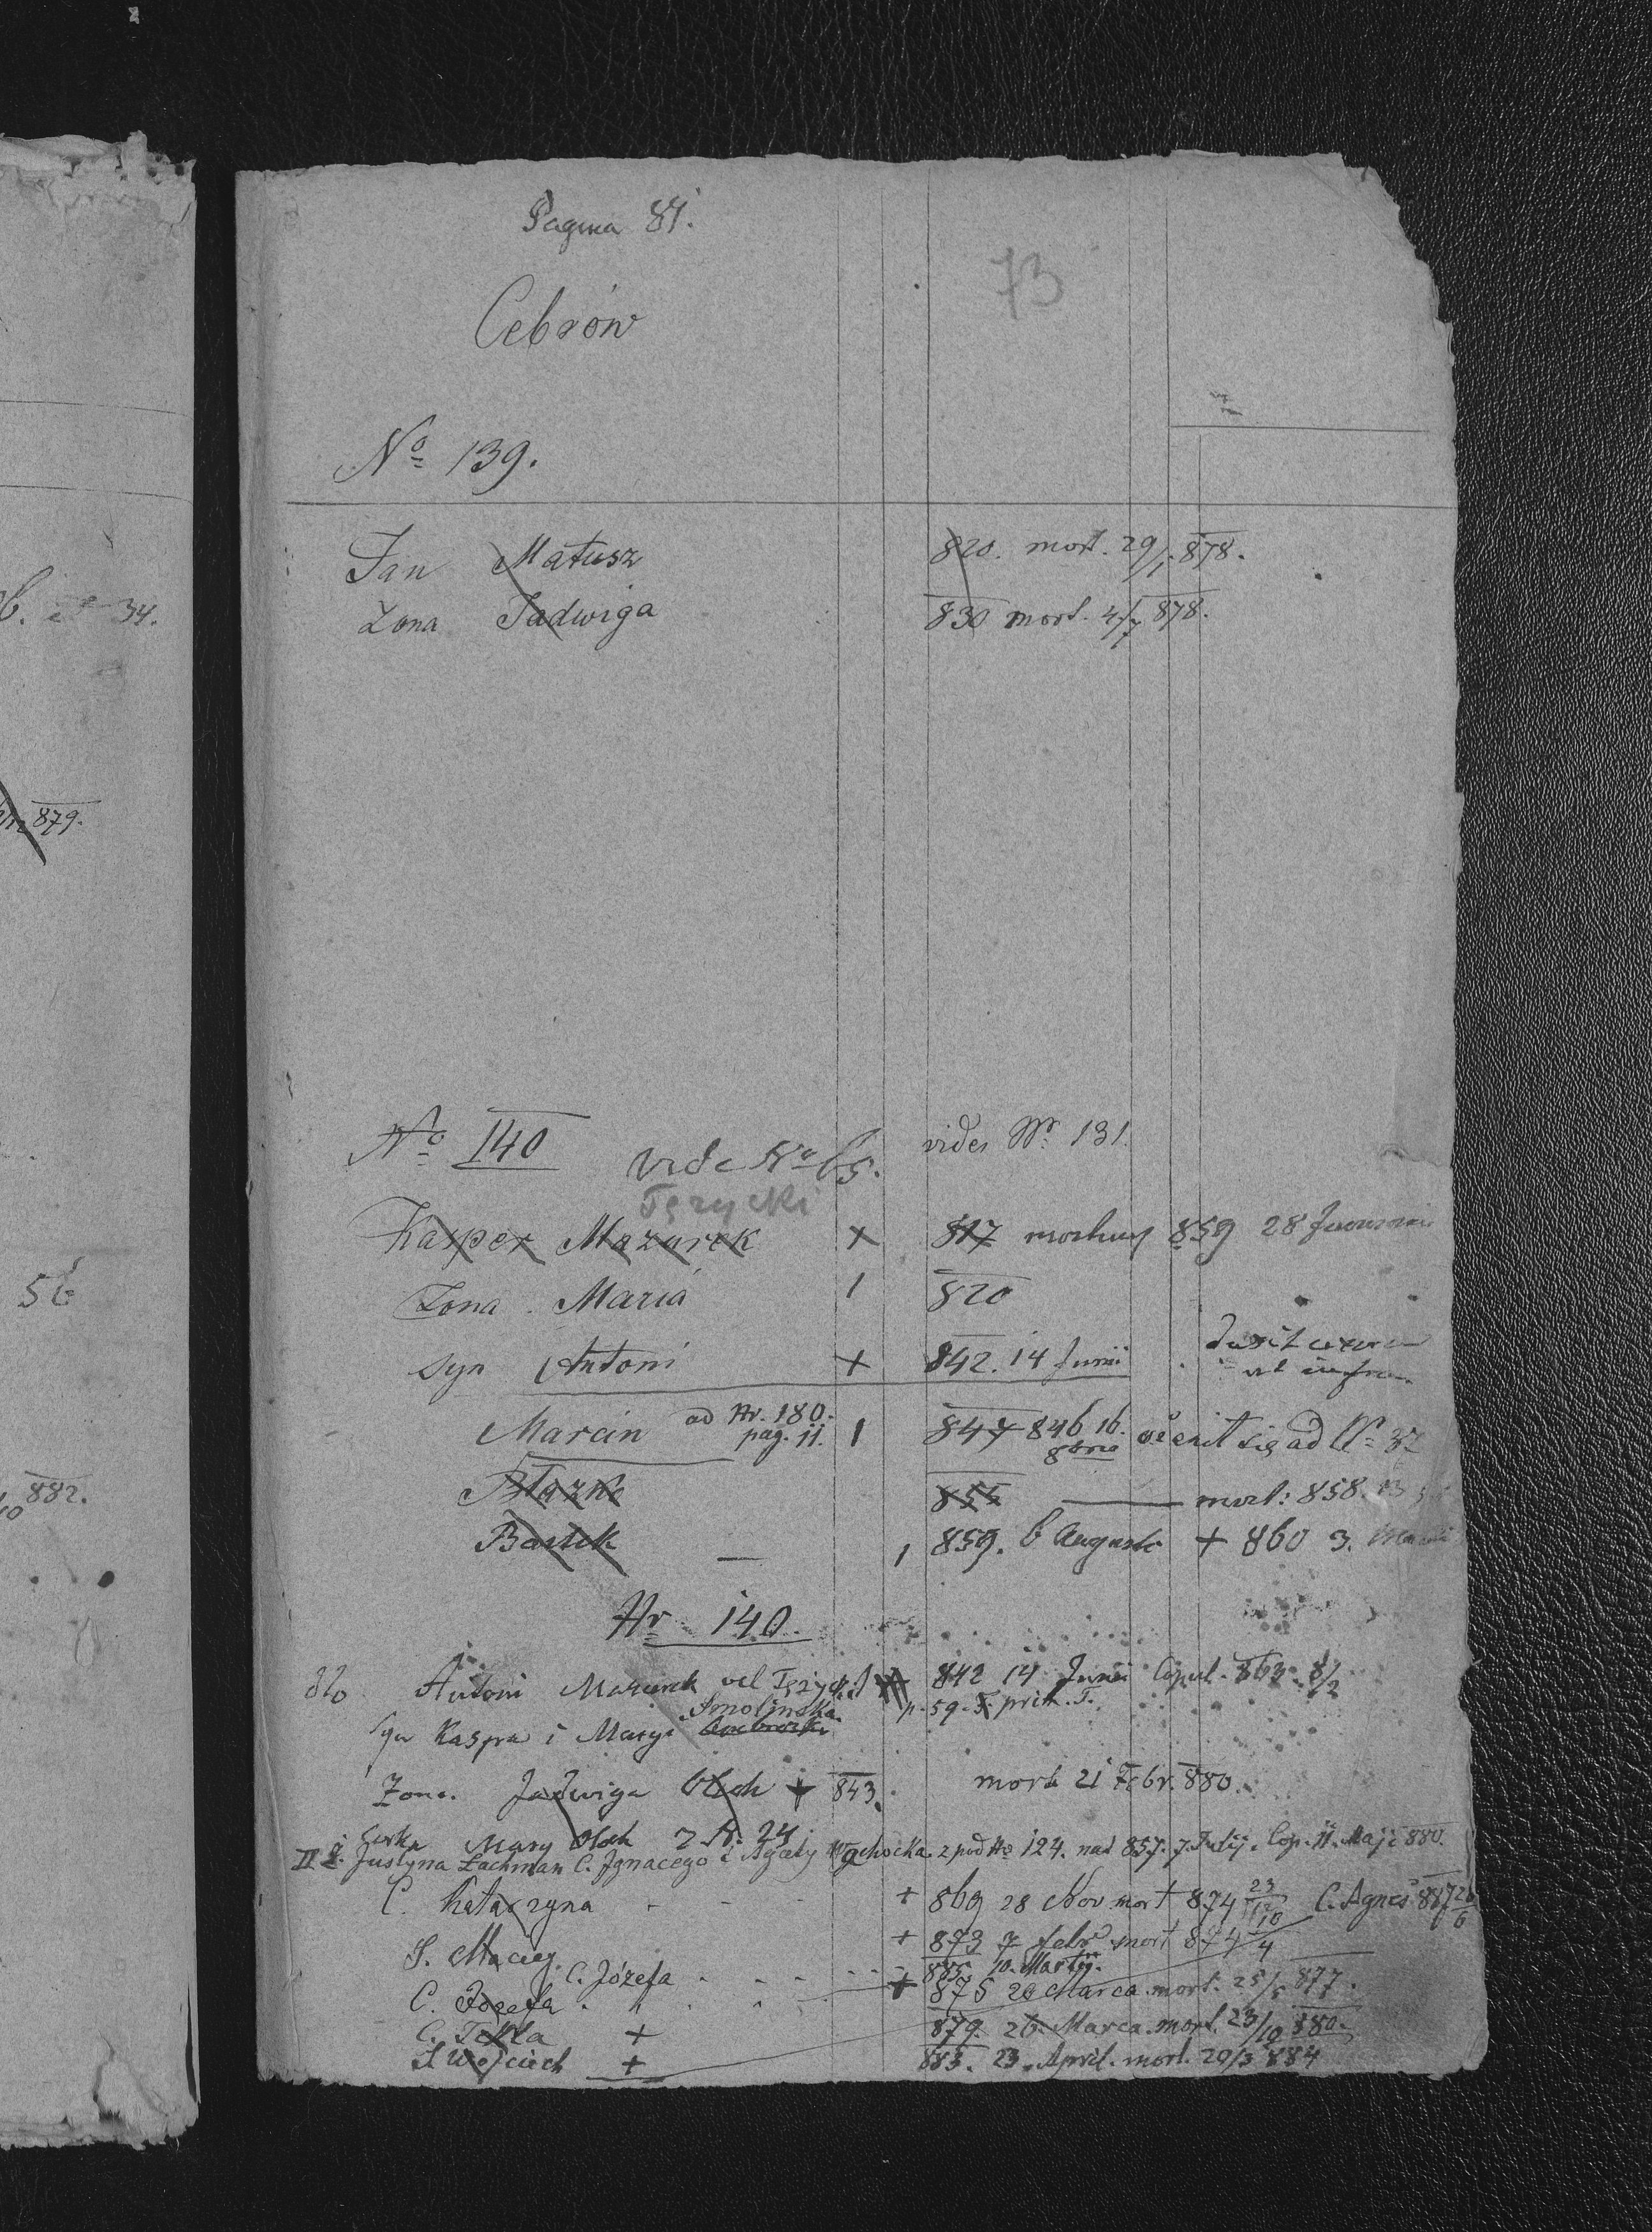 Pagina 84.
73
Cebrów
№ 139.
Jan Matusz 820. mort. 29/1. 878.
Żona Jadwiga 830 mort. 4/7 878.
№ 140 vide № 65. vides Nr 131.
Tęzycki
Kasper Mazurek + 817 mortuus 859 28 Januarii
Żona. Maria 1 820
syn Antoni + 842. 14 Junii duxit uxorem
ut infra
Marcin ad Nr. 180. pag. 11. 1 847 846 16. 8bris ożenił się ad № 37
Błazko 855 — mort: 858. 13
Bartek — 1 859. 6 Augusti + 860 3.
Nr 140.
Antoni Mazurek vel Tęzycki 842 14 Junii Copul. 863 8/2
p. 59. prim. T.
Syn Kaspra i Maryi Smolinska
Żona. Jadwiga Olech + 843. mort 21 Febr. 880.
Córka Mary Olech z N. 24
II Ż. Justyna Lachman C. Jgnacego i Agaty Wachocka. z pod No 124. nat 857. 7. Julij. Cop. 11. Maji 880.
C. Katarzyna - - - + 869 28 Nov mort 874 23/10 C. Agnes 887 26/6
S. Maciej + 873 7 febr mort 874 /4
C. Józefa - - - - 885. 10. Martij.
C. Józefa + 875 20 Marca mort. 25/ 877.
C. Tekla + 879. 26. Marca. mort. 23/10 880.
S Wojciech + 883. 23. April. mort. 20/3 884
b. 34.
879.
56
882.